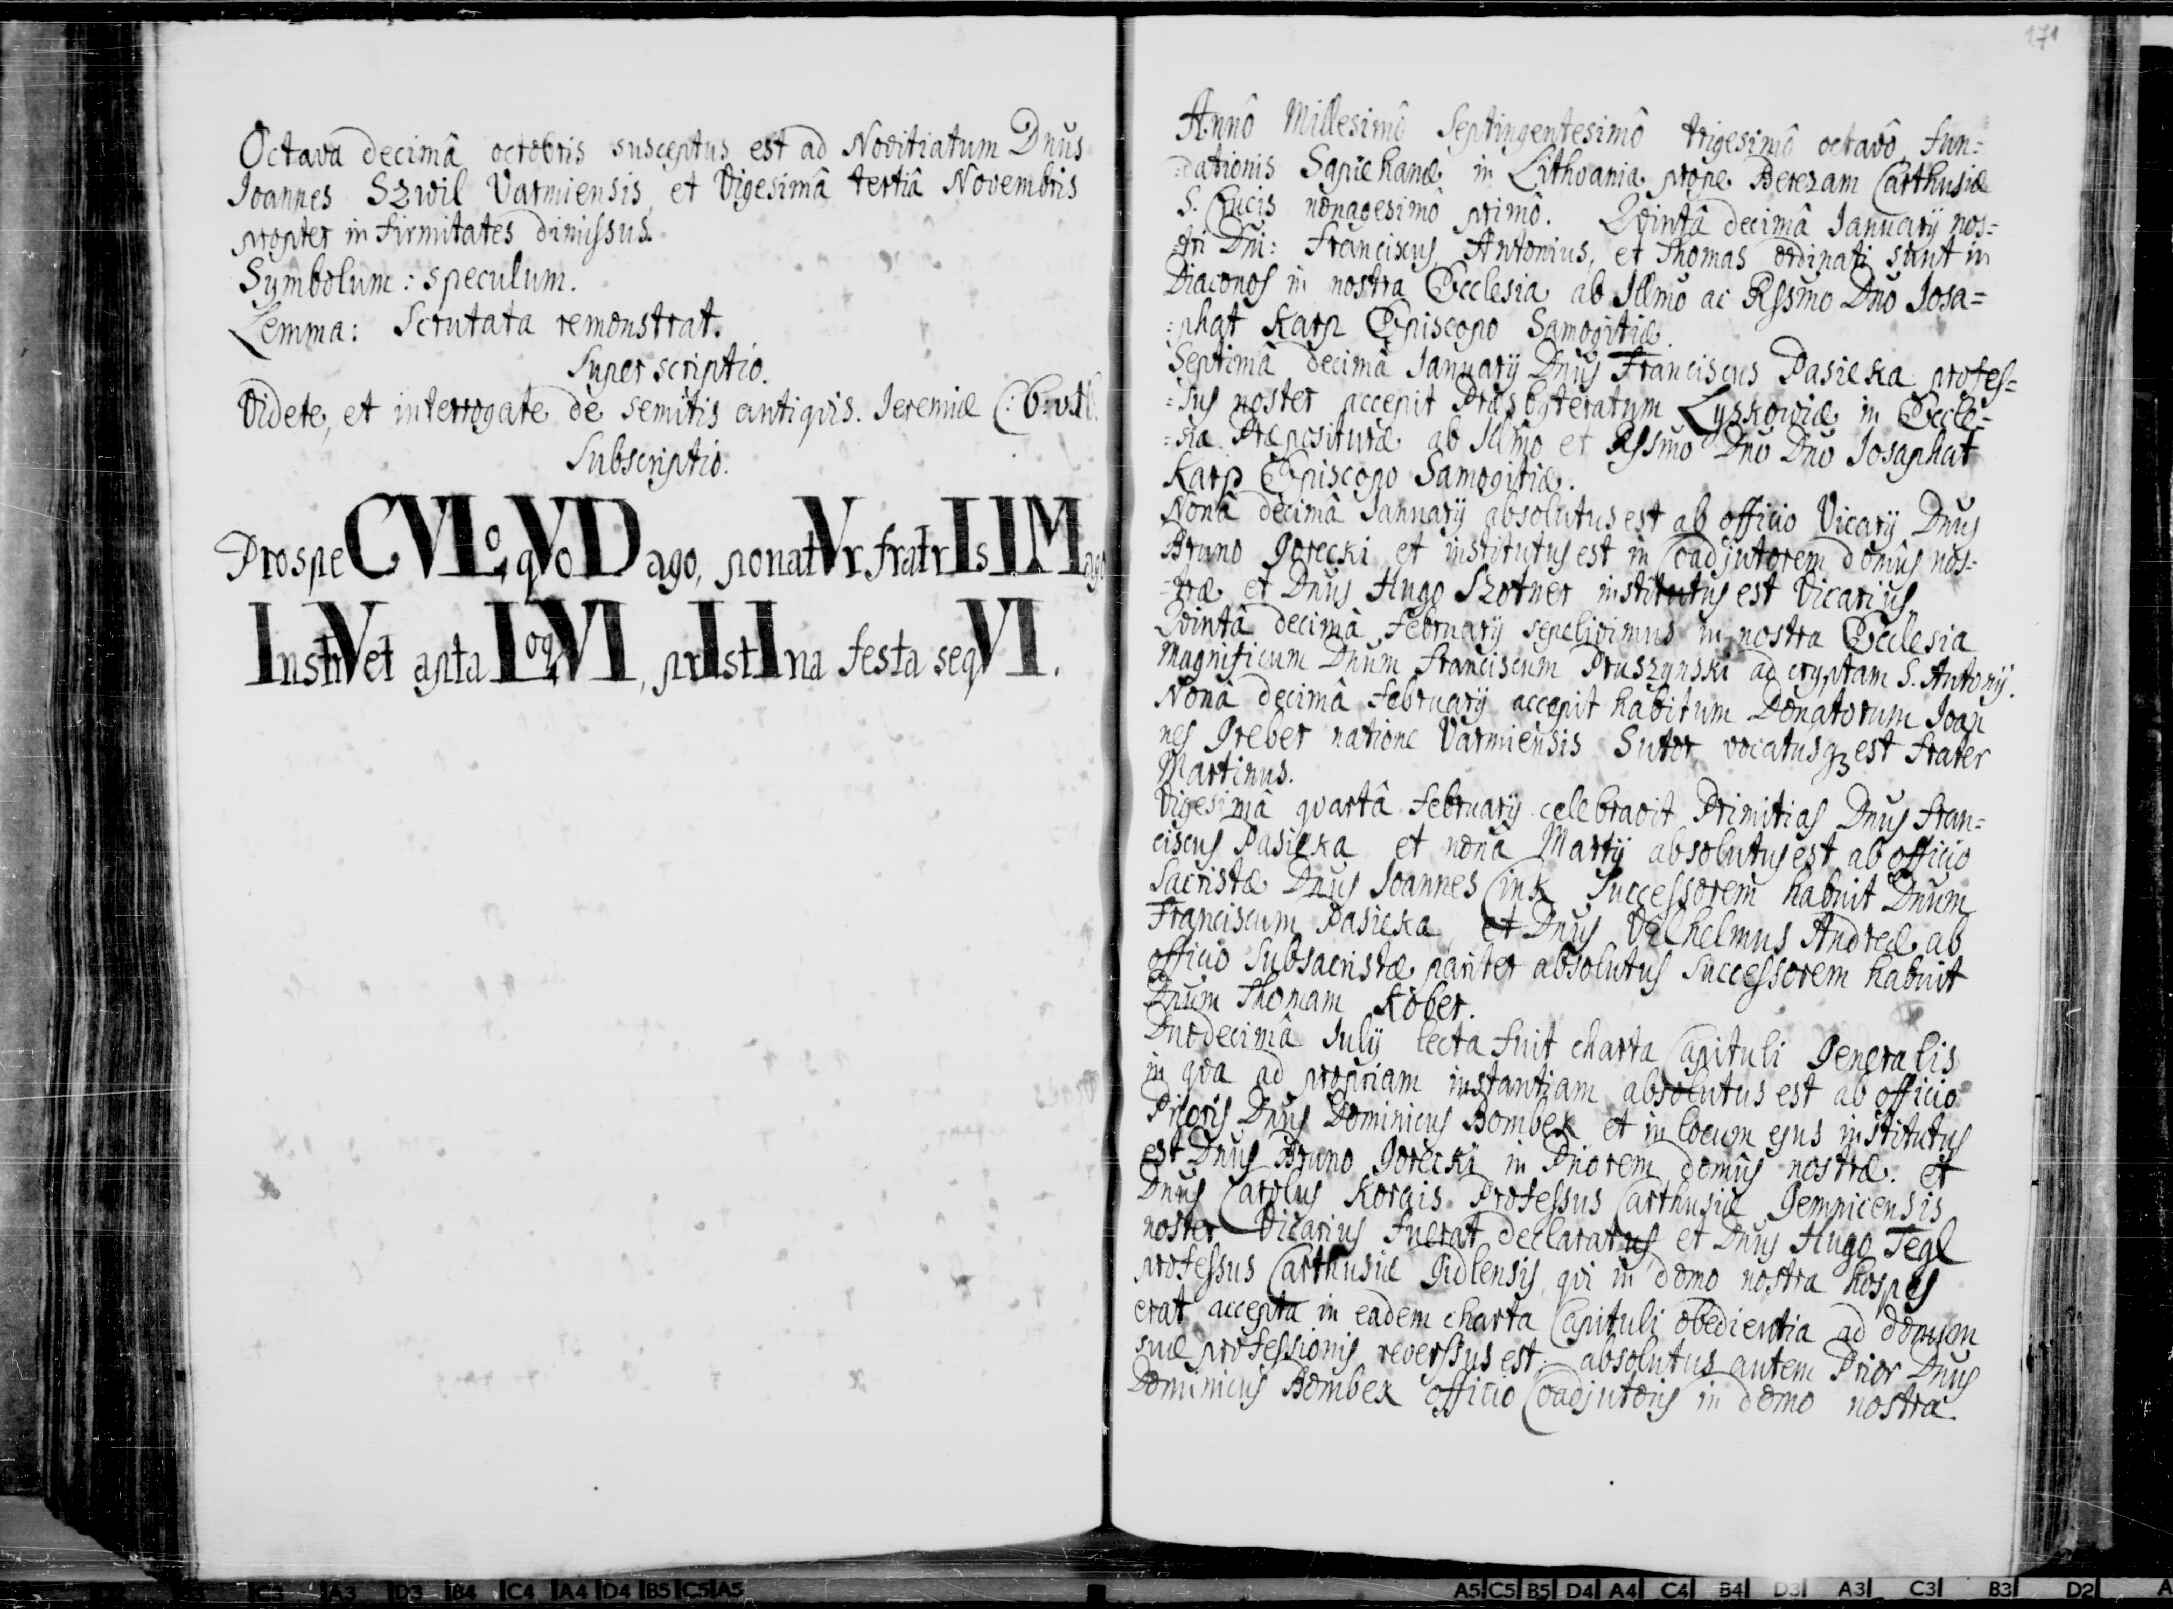 Octava decimâ octobris susceptus est ad Novitiatum Dnus
Joannes Szwil Varmiensis, et Vigesimâ tertiâ Novembris
propter infirmitates dimissus.
Symbolum: speculum.
Lemma: Scrutata remonstrat.
Superscriptio.
Videte, et interrogate de semitis antiquis. Jeremiæ C: 6: v: 16.
Subscriptio.
ProspeCVLo, qVoD ago, ponatVr fratrIs IMago
InstrVet apta LoqVI, prIstIna festa seqVI.
171
Annô Millesimô Septingentesimô trigesimô octavô fun=
=dationis Sapiehanæ in Lithvania prope Berezam Carthusiæ
S. Crucis nonagesimô primô. Qvintâ decimâ Januarij nos=
=tri Dni: Franciscus, Antonius, et Thomas ordinati sunt in
Diaconos in nostra Ecclesia ab Illmo ac Rssmo Dno Josa=
=phat Karp Episcopo Samogitiæ.
Septimâ decimâ Januarij Dnus Franciscus Pasieka profes=
=sus noster accepit Præsbyteratum Lyskoviæ in Eccle=
=sia Præposituræ ab Illmo et Rssmo Dno Dno Josaphat
Karp Episcopo Samogitiæ.
Nonâ decimâ Januarij absolutus est ab officio Vicarij Dnus
Bruno Gorecki et institutus est in Coadjutorem domûs nos=
=træ et Dnus Hugo Szotner institutus est Vicarius.
Qvintâ decimâ Februarij sepelivimus in nostra Ecclesia
Magnificum Dnum Franciscum Pruszynski ad cryptam S. Antonij.
Nonâ decimâ Februarij accepit habitum Donatorum Joan
nes Greber natione Varmiensis Sutor vocatusq3 est Frater
Martinus.
Vigesimâ qvartâ Februarij celebravit Primitias Dnus Fran=
ciscus Pasieka et nonâ Martij absolutus est ab officio
Sacristæ Dnus Joannes Cink Successorem habuit Dnum
Franciscum Pasieka et Dnus Vilhelmus Andreæ ab
officio Subsacristæ pariter absolutus Successorem habuit
Dnum Thomam Kober.
Duodecimâ Julij lecta fuit charta Capituli Generalis
in qva ad propriam instantiam absolutus est ab officio
Prioris Dnus Dominicus Bombek et in locum ejus institutus
est Dnus Bruno Gorecki in Priorem domûs nostræ. et
Dnus Carolus Korais Professus Carthusiæ Gemnicensis
noster Vicarius fuerat declaratus, et Dnus Hugo Tegl
professus Carthusiæ Gidlensis, qvi in domo nostra hospes
erat accepta in eadem charta Capituli obedientia ad domum
suæ professionis reverssus est. absolutus autem Prior Dnus
Dominicus Bombek officio Coadjutoris in domo nostra
C3 A3 D3 B4 C4 A4 D4 B5 C5 A5
A5 C5 B5 D4 A4 C4 B4 D3 A3 C3 B3 D2